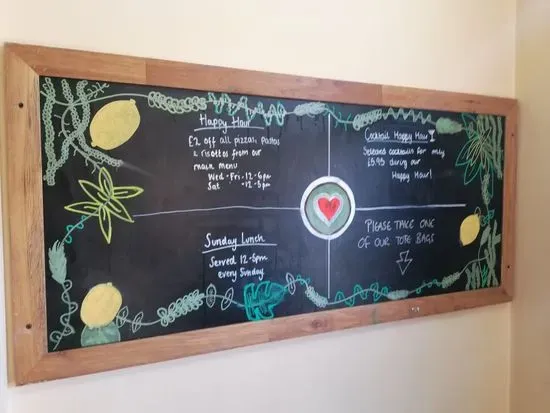 Happy Hour
£2 off all pizzas, pastas
& risottos from our
main menu
Wed - Fri - 12 - 6pm
Sat - 12 - 5pm
Cocktail Happy Hour
Selected cocktails for only
£5.95 during our
Happy Hour!
Sunday Lunch
Served 12 - 5pm
every Sunday
PLEASE TAKE ONE
OF OUR TOTE BAGS